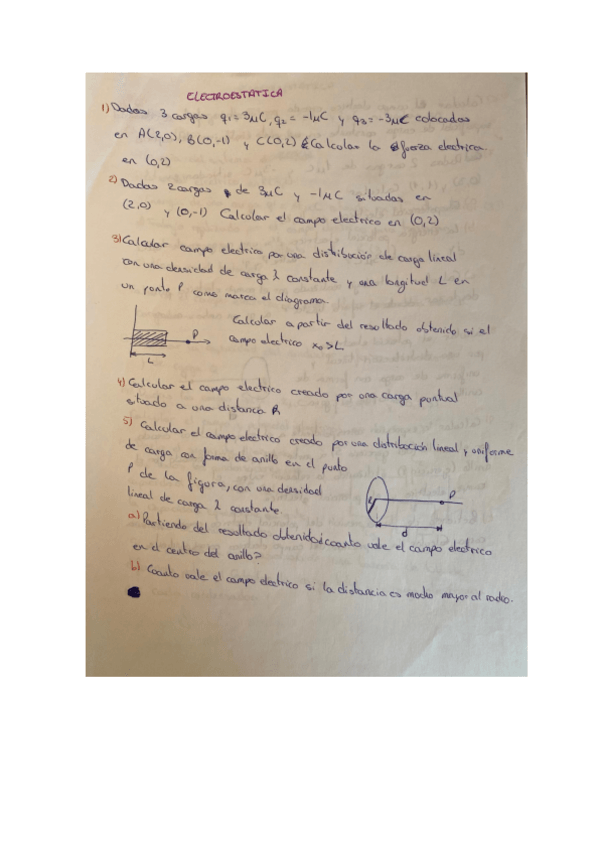 ELECTROESTATICA
1) Dadas 3 cargas q1 = 3μC, q2 = -1μC y q3 = -3μC colocadas
en A(2,0), B(0,-1) y C(0,2) Calcular la fuerza electrica
en (0,2)
2) Dadas 2 cargas de 3μC y -1μC situadas en
(2,0) y (0,-1) Calcular el campo electrico en (0,2)
3) Calcular campo electrico por una distribución de carga lineal
con una densidad de carga λ constante y una longitud L en
un punto P como marca el diagrama.
Calcular a partir del resultado obtenido si el
campo electrico x₀>L
P
L
4) Calcular el campo electrico creado por una carga puntual
situado a una distancia R
5) Calcular el campo electrico creado por una distribución lineal y uniforme
de carga con forma de anillo en el punto
P de la figura, con una densidad
lineal de carga λ constante.
P
d
a) Partiendo del resultado obtenido ¿cuanto vale el campo electrico
en el centro del anillo?
b) Cuanto vale el campo electrico si la distancia es mucho mayor al radio.